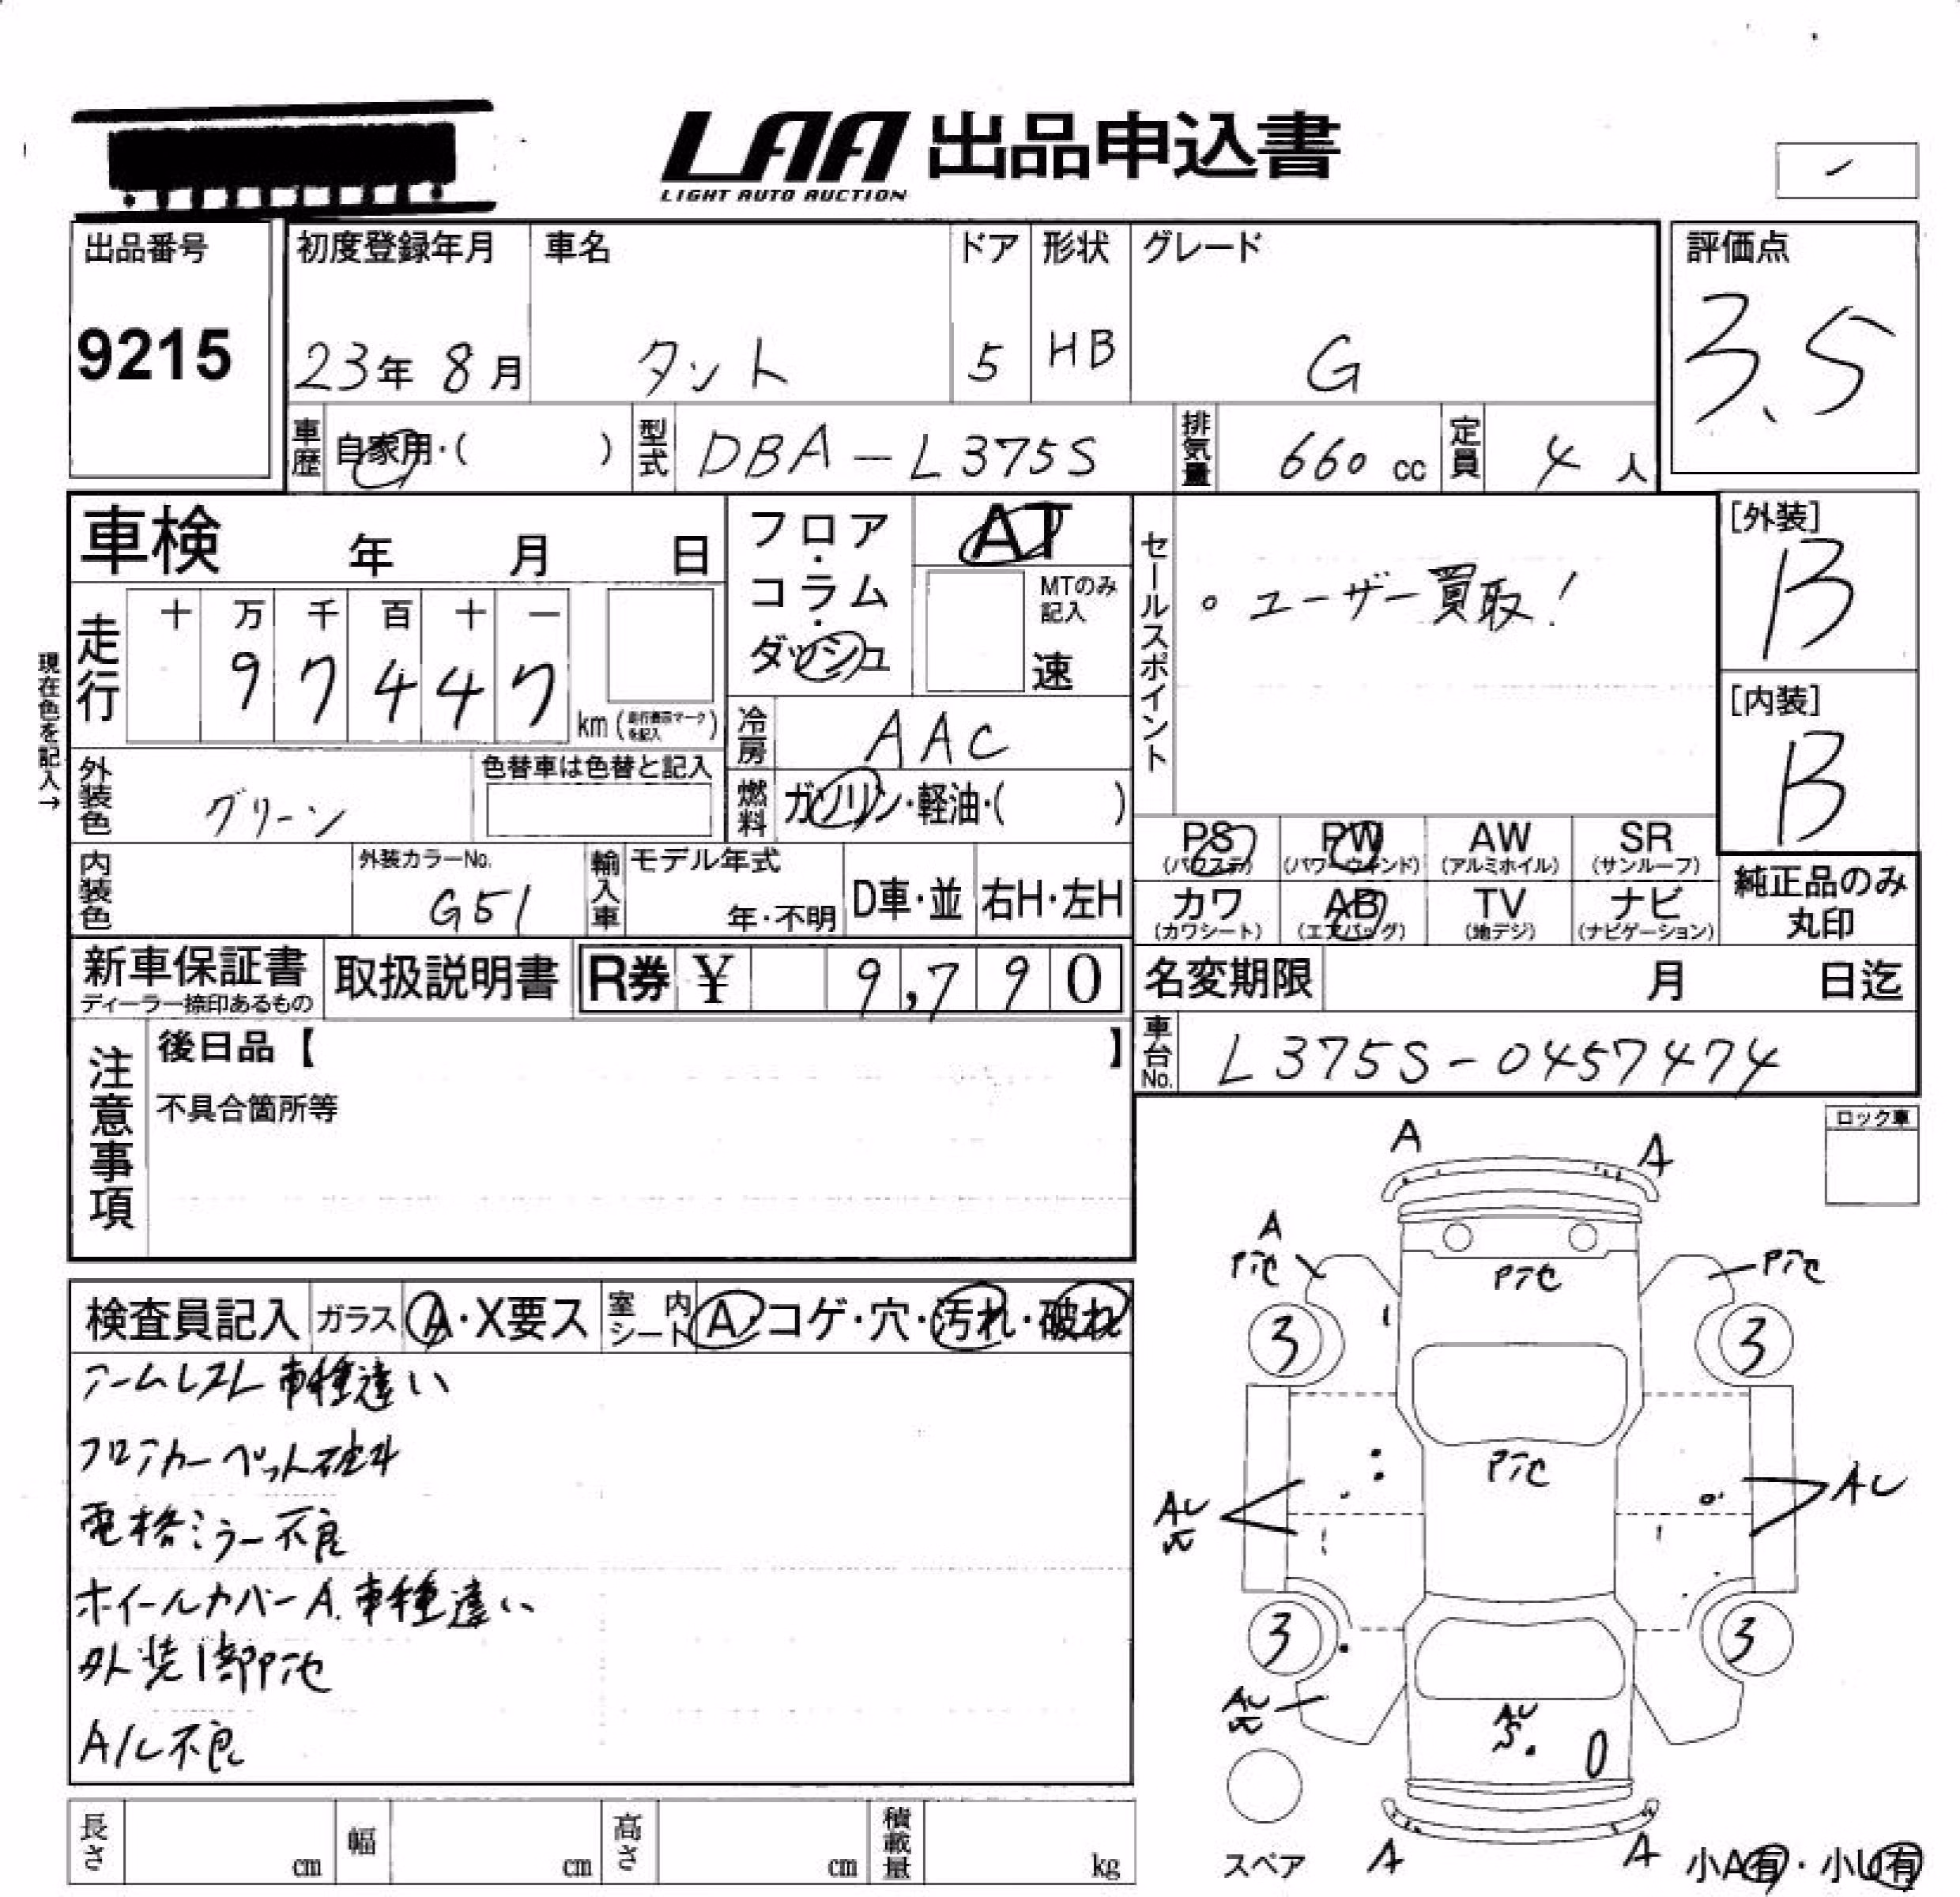 LAA 出品申込書
LIGHT AUTO AUCTION
出品番号
9215
初度登録年月
23年 8月
車名
タント
ドア
5
形状
HB
グレード
G
評価点
3.5
車歴 自家用・( )
型式 DBA-L375S
排気量 660 cc
定員 4 人
車検 年 月 日
現在色を記入→
走行 十 万 千 百 十 一
9 7 4 4 7
km (走行表示マークを記入)
フロア・コラム・ダッシュ
AT
MTのみ記入
速
冷房 AAC
燃料 ガソリン・軽油・( )
セールスポイント
。ユーザー買取!
[外装]
B
[内装]
B
外装色 グリーン
色替車は色替と記入
内装色
外装カラーNo.
G51
輸入車 モデル年式
年・不明
D車・並
右H・左H
PS (パワステ)
PW (パワーウィンド)
AW (アルミホイル)
SR (サンルーフ)
カワ (カワシート)
AB (エアバッグ)
TV (地デジ)
ナビ (ナビゲーション)
純正品のみ丸印
新車保証書
ディーラー捺印あるもの
取扱説明書
R券 ¥ 9,790
名変期限 月 日迄
車台No. L375S-0457474
注意事項
後日品【 】
不具合箇所等
ロック車
検査員記入
ガラス A・X要ス
室内シート A・コゲ・穴・汚れ・破れ
アームレスト車種違い
フロアカーペット破れ
電格ミラー不良
ホイールカバーA.車種違い
外装1部P化
A/C不良
A
A
A
P化
P化
P化
3
3
P化
AU
AU
3
3
AU
AU
A
A
スペア
小A有・小U有
長さ cm
幅 cm
高さ cm
積載量 kg